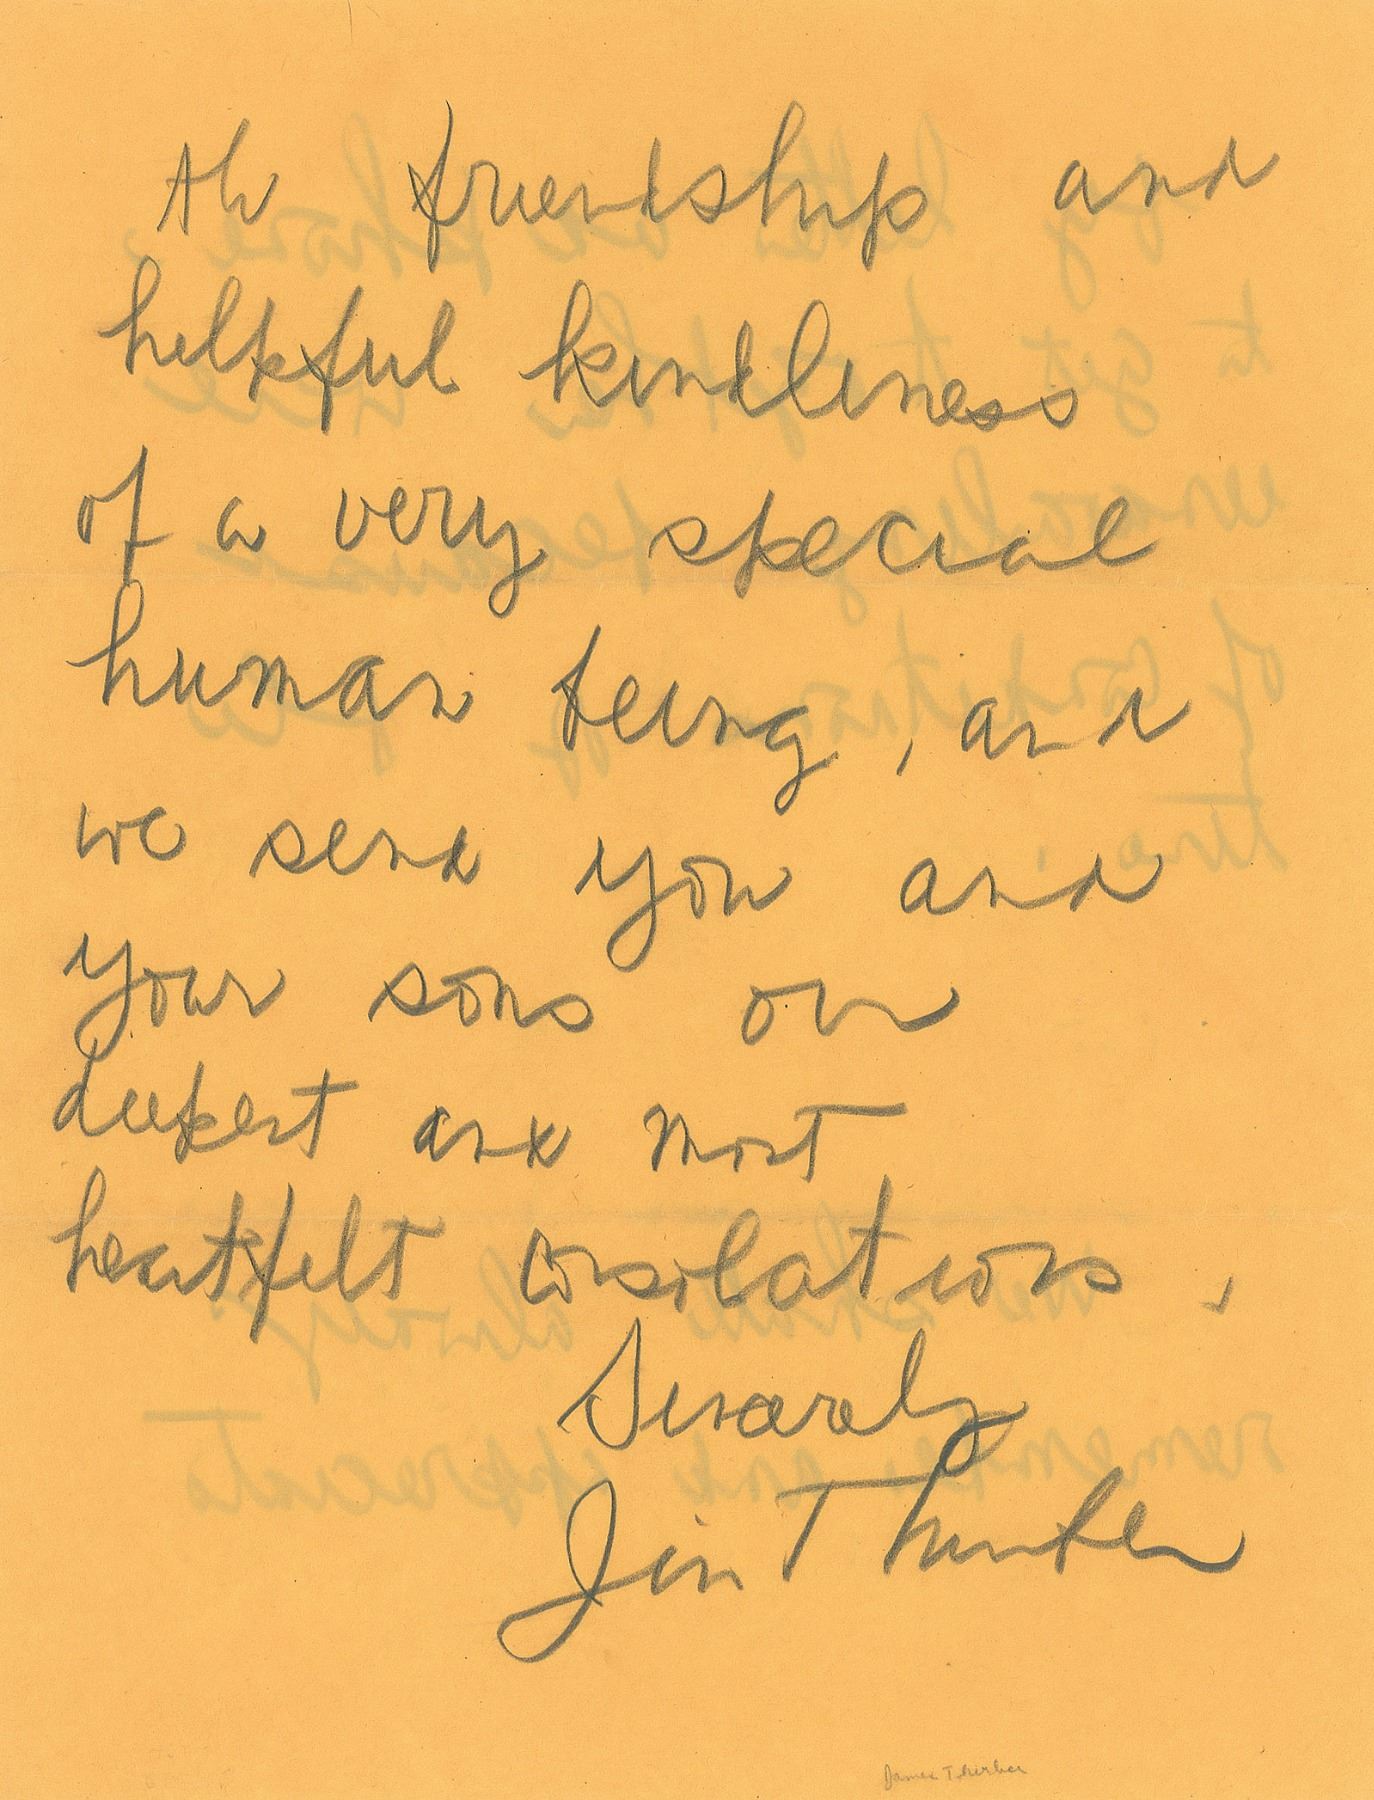 the friendship and
helpful kindliness
of a very special
human being, and
we send you and
your sons our
deepest and most
heartfelt consolations,
Sincerely
Jim Thurber
James Thurber